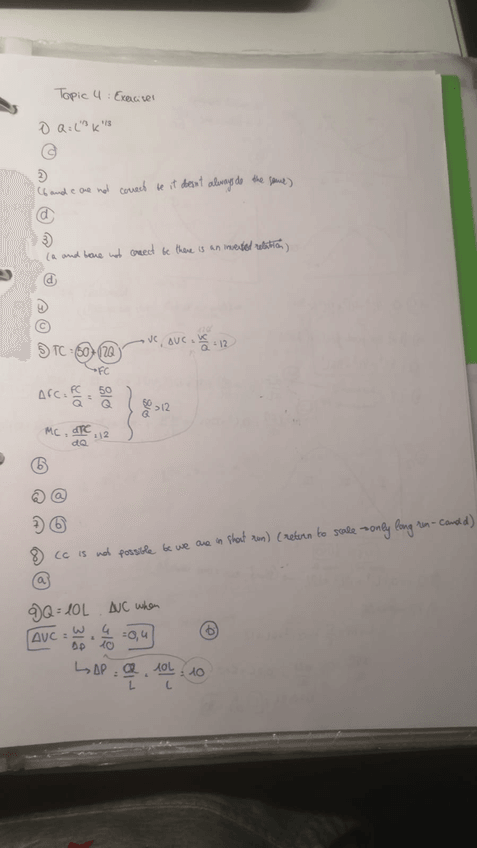 Topic 4: Exercises
1) Q = L^1/3 K^1/3
(c)
2)
(b and c are not correct bc it doesn't always do the same)
(d)
3)
(a and b are not correct bc there is an inverted relation)
(d)
4)
(c)
5) TC = 50 + 12Q → VC, AVC = VC/Q = 12
→ FC
AFC = FC/Q = 50/Q
50/Q > 12
MC = dTC/dQ = 12
(b)
6) (a)
7) (b)
8) (c is not possible bc we are in short run) (return to scale → only long run - c and d)
(a)
9) Q = 10L. AVC when
AVC = W/AP = 4/10 = 0,4 (b)
↳ AP = Q/L = 10L/L = 10